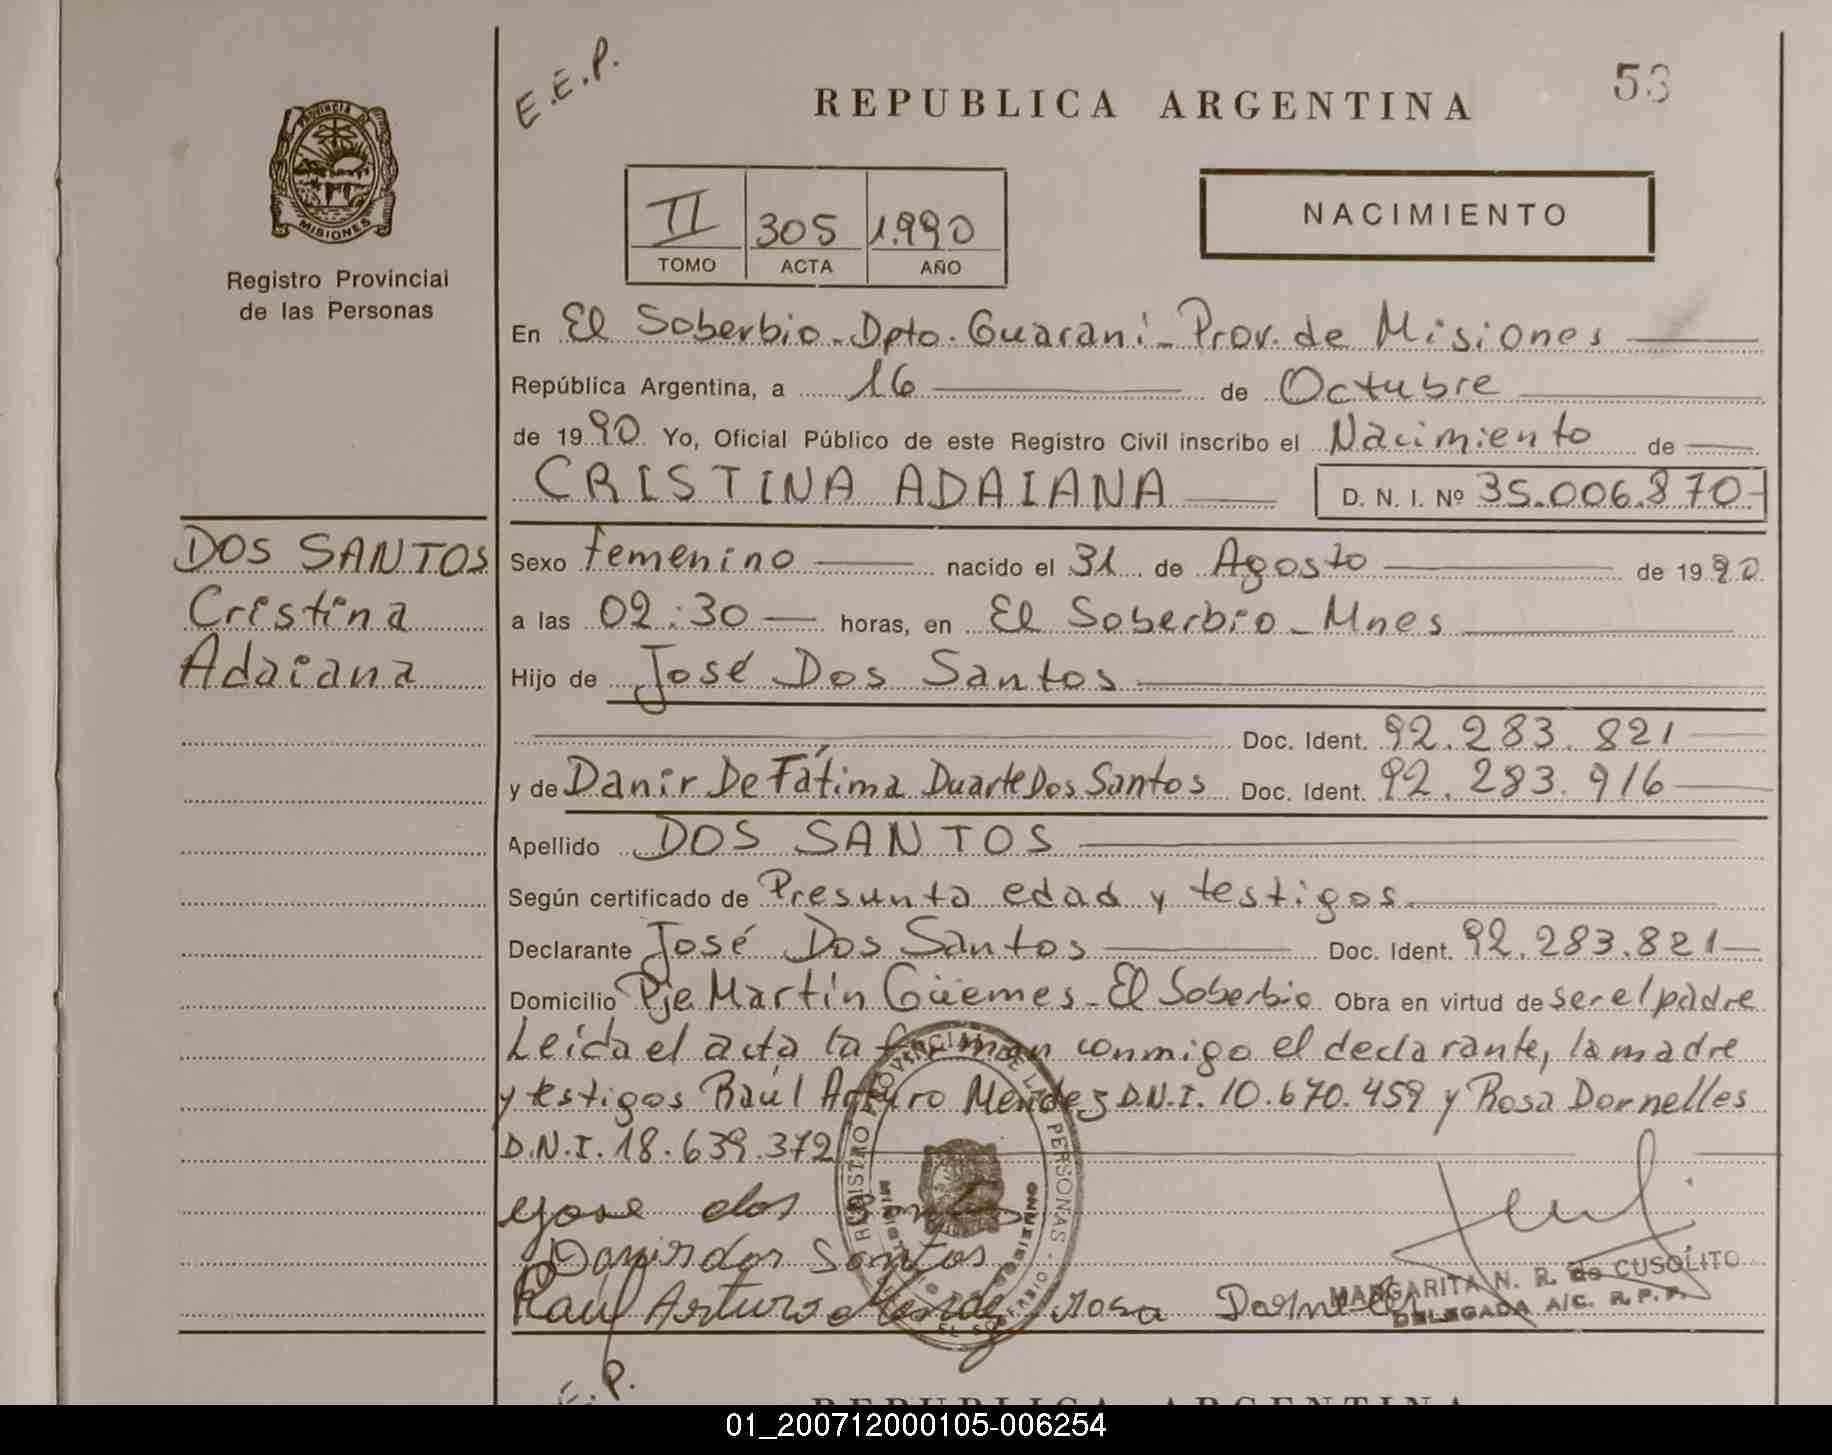 E.E.P.
53
REPUBLICA ARGENTINA
PROVINCIA DE
MISIONES
Registro Provincial
de las Personas
II 305 1.990
TOMO ACTA AÑO
NACIMIENTO
En El Soberbio - Dpto. Guaraní - Prov. de Misiones
República Argentina, a 16 de Octubre
de 1990 Yo, Oficial Público de este Registro Civil inscribo el Nacimiento de
CRISTINA ADAIANA D. N. I. Nº 35.006.870-
DOS SANTOS
Cristina
Adaiana
Sexo femenino nacido el 31 de Agosto de 1990
a las 02:30 horas, en El Soberbio - Mnes
Hijo de José Dos Santos
Doc. Ident. 92.283.821
y de Danir De Fátima Duarte Dos Santos Doc. Ident. 92.283.916
Apellido DOS SANTOS
Según certificado de Presunta edad y testigos.
Declarante José Dos Santos Doc. Ident. 92.283.821
Domicilio Pje Martín Güemes - El Soberbio Obra en virtud de ser el padre
Leída el acta la firman conmigo el declarante, la madre
y testigos Raúl Arturo Mendez D.N.I. 10.670.459 y Rosa Dornelles
D.N.I. 18.639.372
REGISTRO PROVINCIAL DE LAS PERSONAS
MINISTERIO GOBIERNO
EL SOBERBIO
Jose dos Santos
Danir dos Santos
Raúl Arturo Mendez rosa Dornelles
MARGARITA N. R. de CUSOLITO
DELEGADA A/C. R.P.P.
E.P.
REPUBLICA ARGENTINA
01_200712000105-006254